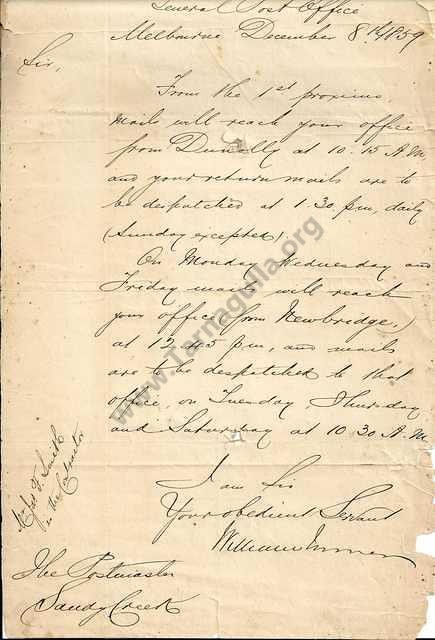 General Post Office
Melbourne December 8th 1859
Sir,
From the 1st proximo,
mails will reach your office
from Dunolly at 10.15 A.M
and your return mails are to
be despatched at 1.30. p.m, daily
(Sunday excepted).
On Monday Wednesday and
Friday mails will reach
your office (from Newbridge,)
at 12.45 p m, and mails
are to be despatched to that
office, on Tuesday, Thursday
and Saturday at 10.30 A.M
I am Sir
Your obedient Servant
William
The Postmaster
Sandy Creek
Smith
in the
www.Tarnagulla.org